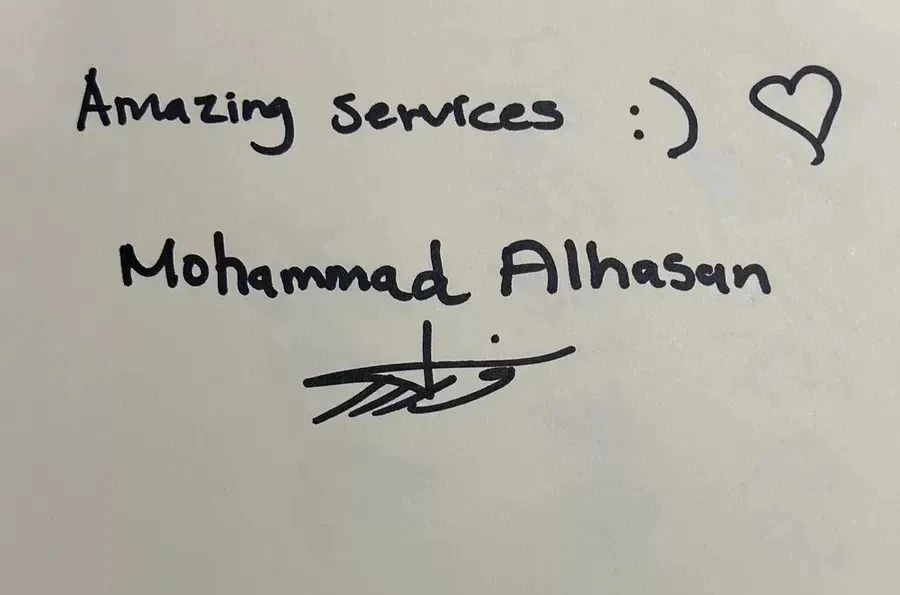 Amazing services :) ♡
Mohammad Alhasan